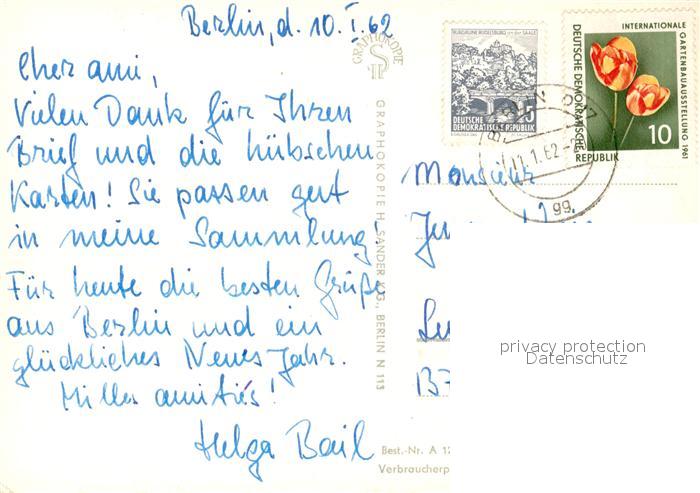 Berlin, d. 10. I. 62
Cher ami,
Vielen Dank für Ihren
Brief und die hübschen
Karten! Sie passen gut
in meine Sammlung!
Für heute die besten Grüße
aus Berlin und ein
glückliches Neues Jahr.
Milles amitiés!
Helga Bail
GRAPHOKOPIE
GRAPHOKOPIE H. SANDER KG., BERLIN N 113
BURGRUINE RUDELSBURG an der SAALE
5
DEUTSCHE
DEMOKRATISCHE REPUBLIK
INTERNATIONALE
GARTENBAUAUSSTELLUNG 1961
DEUTSCHE DEMOKRATISCHE
REPUBLIK
10
11.1.62
gg
Monsieur
privacy protection
Datenschutz
Best.-Nr. A 12
Verbraucherp